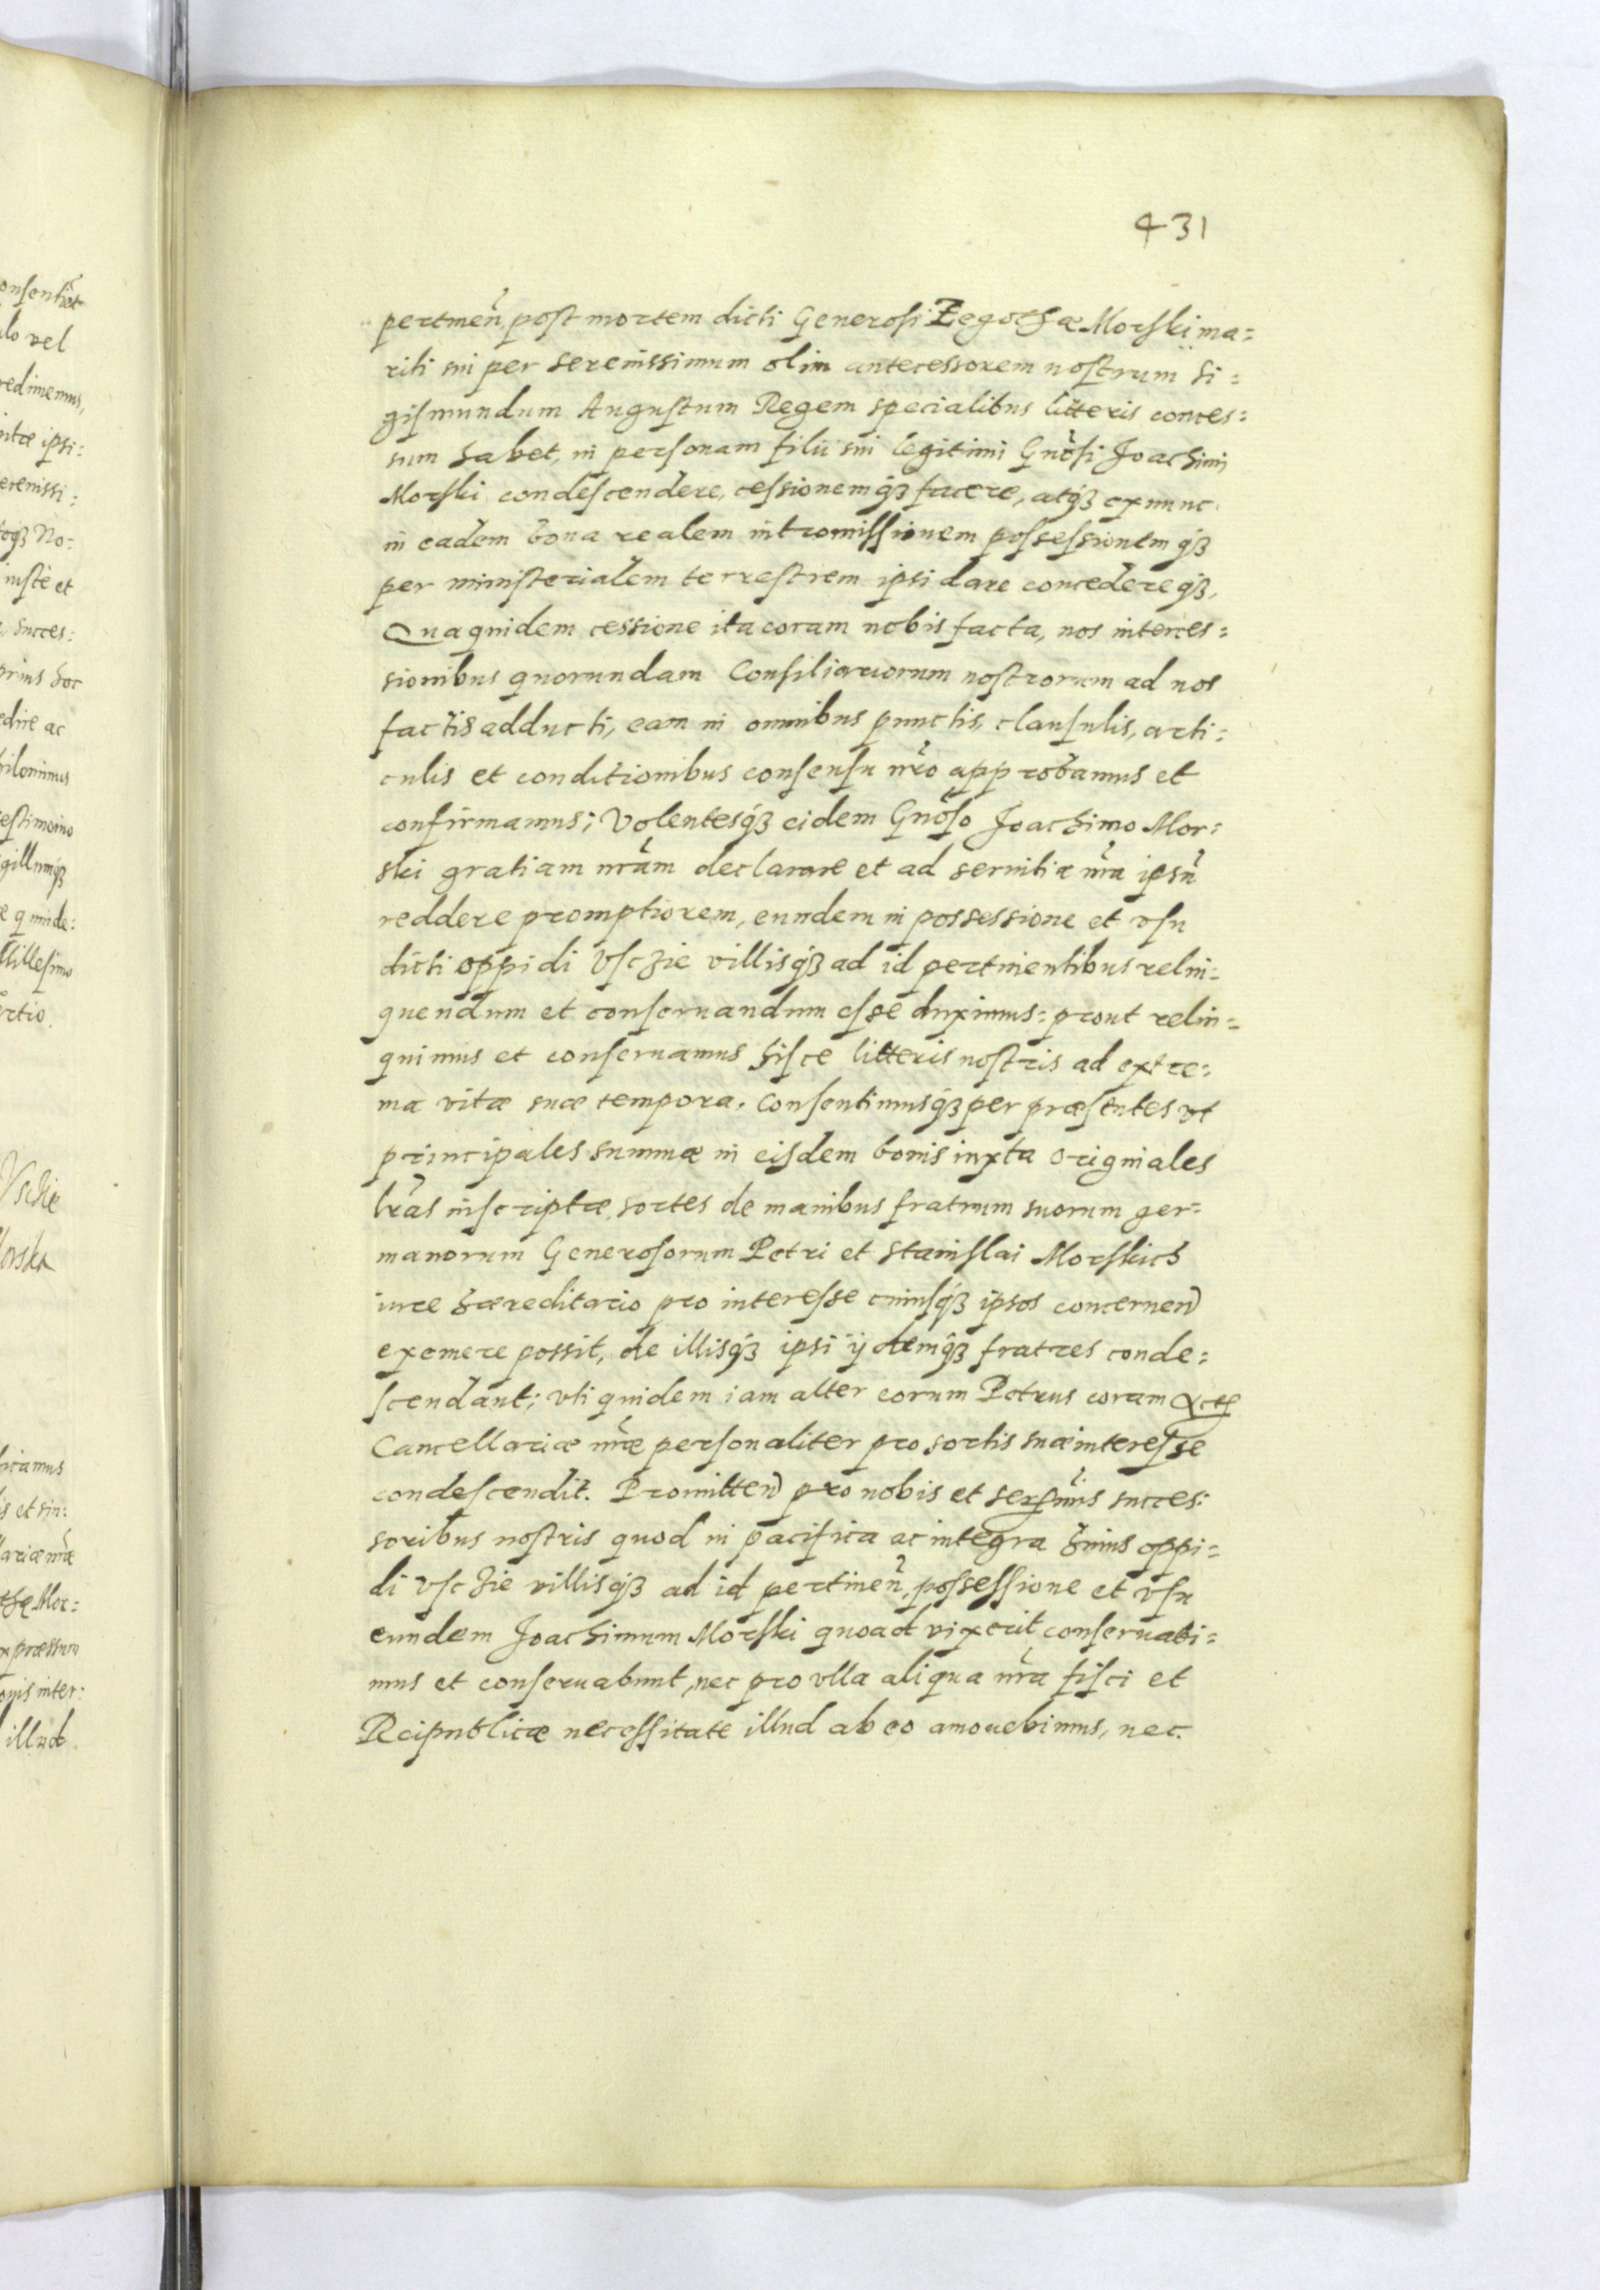 431
onsentiet
ulo vel
redimemus,
itæ ipsi:
erenissi:
toq3 No:
iuste et
succes:
prius hoc
edire ac
estimonio
gillumq3
Millesimo
Vschie
Morska
licamus
is et sin:
lariæ nræ
thæ Mor:
onis inter:
illud
pertineñ, post mortem dicti Generosi Zegothæ Morski ma=
riti sui per serenissimum olim antecessorem nostrum Si=
gismundum Augustum Regem specialibus litteris conces=
sum habet, in personam filii sui legitimi Gnosi Joachimi
Morski condescendere, cessionemq3 facere, atq3 exnunc
in eadem bona realem intromissionem possessionemq3
per ministerialem terrestrem ipsi dare concedereq3,
Quaquidem cessione ita coram nobis facta, nos interces=
sionibus quorundam Consiliariorum nostrorum ad nos
factis adducti, eam in omnibus punctis, clausulis, arti=
culis et conditionibus consensu nro approbamus et
confirmamus; Volentesq3 eidem Gnoso Joachimo Mor=
ski gratiam nram declarare et ad seruitia nra ipsũ
reddere promptiorem, eundem in possessione et vsu
dicti oppidi Vschie villisq3 ad id pertinentibus relin=
quendum et conseruandum esse duximus: prout relin=
quimus et conseruamus hisce litteris nostris ad extre=
ma vitæ suæ tempora. Consentimusq3 per præsentes vt
principales summæ in eisdem bonis iuxta originales
lras inscriptæ, sortes de manibus fratrum suorum ger=
manorum Generosorum Petri et Stanislai Morskich
iure hæreditario pro interesse cuiusq3 ipsos concerneñ
exemere possit, de illisq3 ipsi ijdemq3 fratres conde=
scendant; vti quidem iam alter eorum Petrus coram Actis
Cancellariæ nræ personaliter pro sortis suæ interesse
condescendit. Promitteñ pro nobis et sermis succes:
soribus nostris quod in pacifica ac integra huius oppi=
di Vschie villisq3 ad id pertineñ, possessione et vsu
eundem Joachimum Morski quoad vixerit conseruabi=
mus et conseruabunt, nec pro vlla aliqua nra fisci et
Reipublicæ necessitate illud ab eo amouebimus, nec